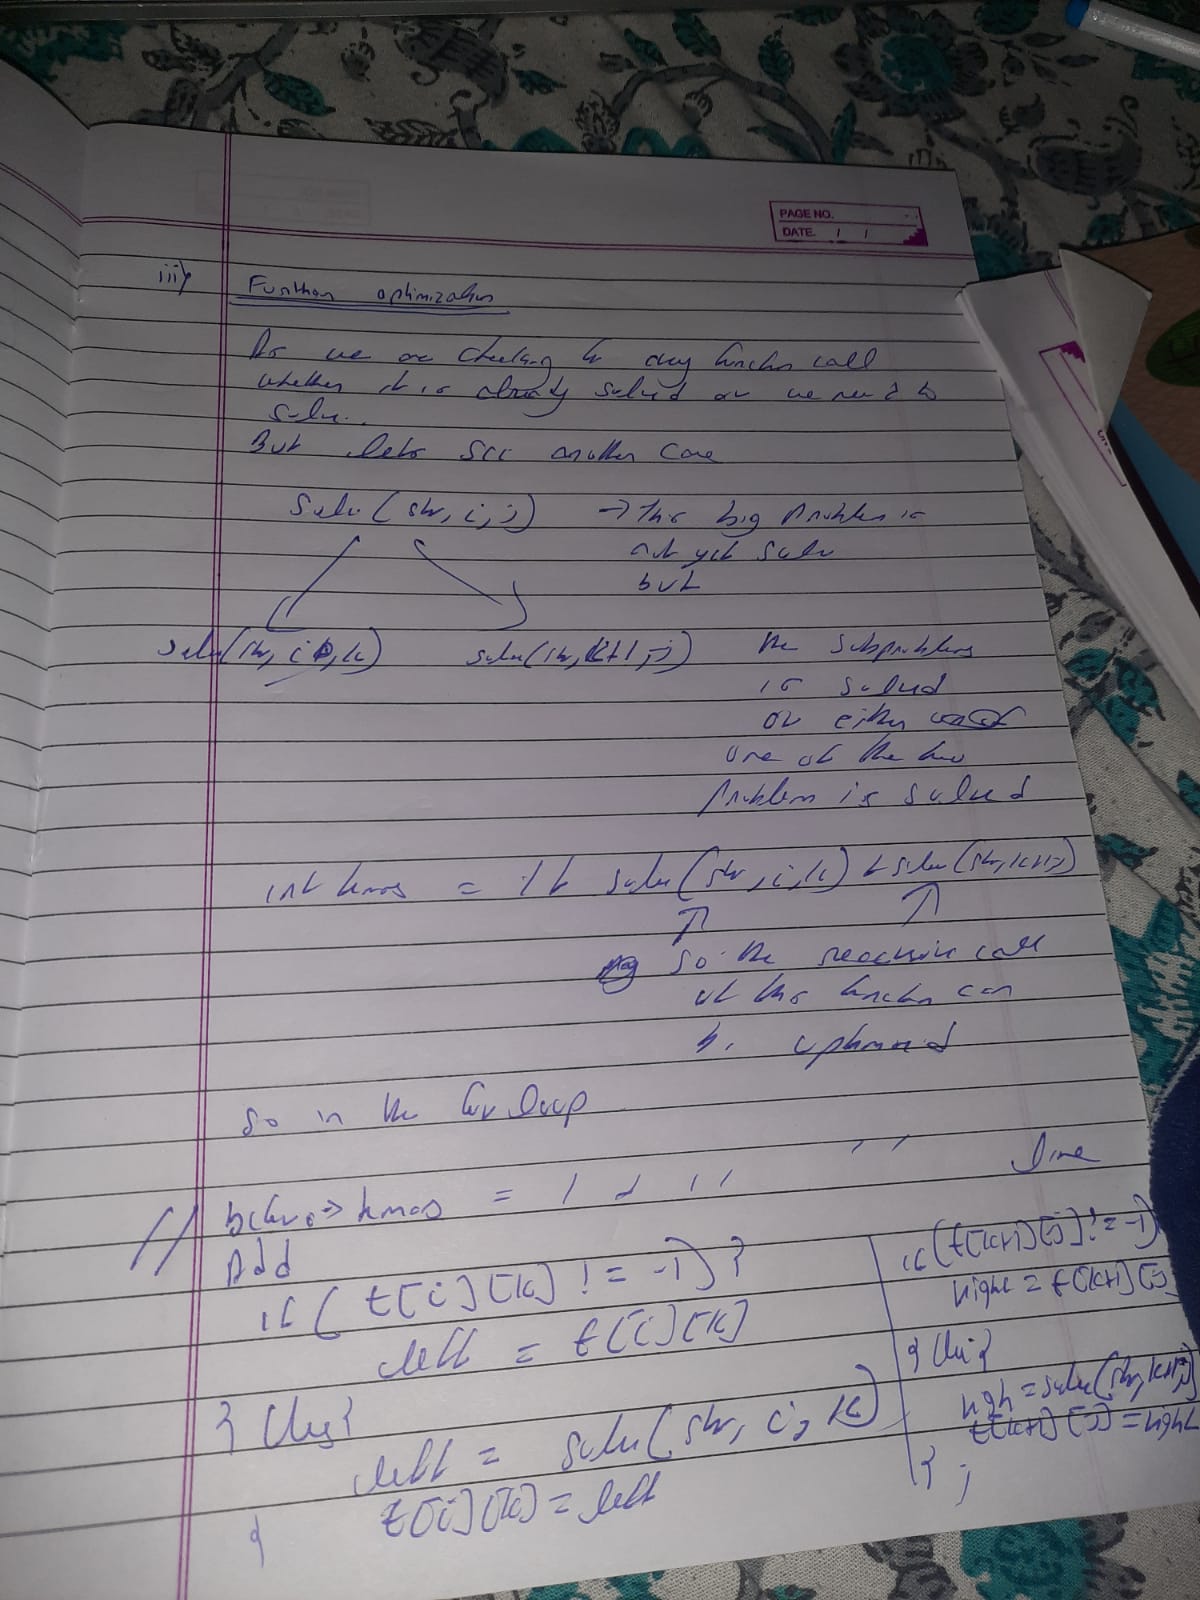 PAGE NO.
DATE. / /
iii)
Further optimization
As we are checking for any function call
whether it is already solved or we need to
solve..
But lets see another case
Solve(str, i, j) → This big problem is
not yet solve
but
solve(str, i, k) solve(str, k+1, j) the subproblems
is solved
or either
one of the two
problem is solved
int temp = 1 + solve(str, i, k) + solve(str, k+1, j)
so the recursive call
of this function can
be optimized
So in the for loop
// before → temp = 1 + , , , , line
Add
if ( t[i][k] != -1) {
left = t[i][k]
} else {
left = solve(str, i, k)
t[i][k] = left
}
if (t[k+1][j] != -1)
right = t[k+1][j]
} else {
right = solve(str, k+1, j)
t[k+1][j] = right
} ;